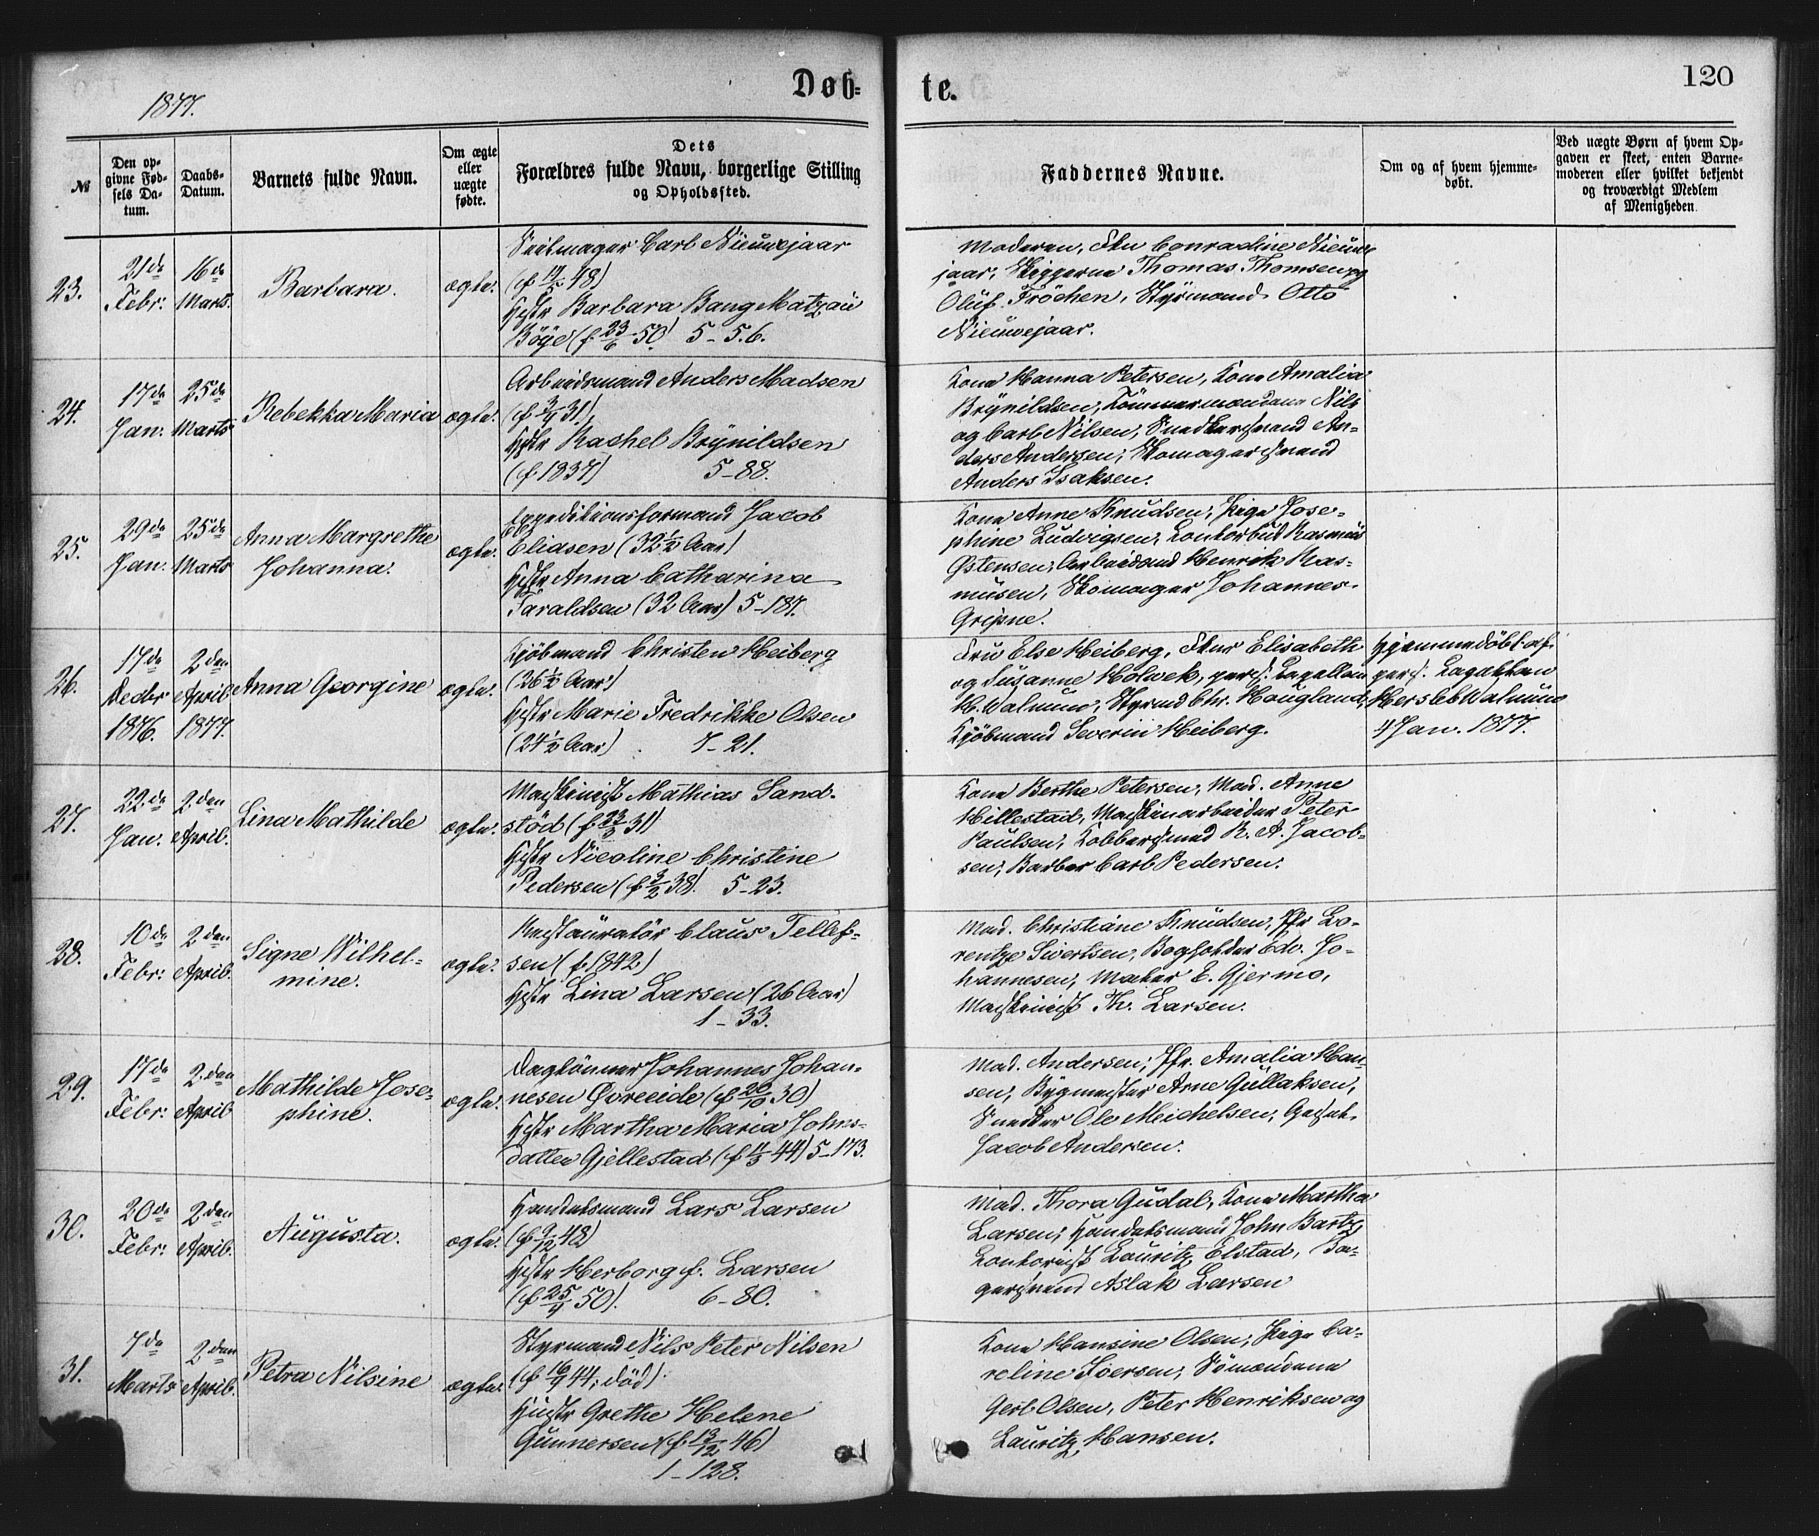 Døb=
te.
120
1877.
№
Den op-
givne Fød-
sels Da-
tum.
Daabs-
Datum.
Barnets fulde Navn.
Om ægte
eller
uægte
fødte.
Dets
Forældres fulde Navn, borgerlige Stilling
og Opholdssted.
Faddernes Navne.
Om og af hvem hjemme-
døbt.
Ved uægte Børn af hvem Op-
gaven er skeet, enten Barne-
moderen eller hvilket bekjendt
og troværdigt Medlem
af Menigheden
23.
21de
Febr:
16de
Marts.
Barbara.
ægte.
Seilmager Carl Nieuwejaar
48)
Hustr Barbara Bang Matzau
Böye (f. 23/6 50) 5-5.6.
Moderen, Frk Conradine Nieuwe
jaar, Skipperne Thomas Thomsen og
Oluf Fröchen, Styrmand Otto
Nieuwejaar.
24.
17de
Jan.
25de
Marts
Rebekka Maria
ægte.
Arbeidsmand Anders Madsen
31)
Hstr Rachel Brynildsen
(f. 1837) 5-88.
Kone Hanna Petersen, Kone Amalia
Brynildsen, Tömmermændene Nils
og Carl Nilsen, Snedkersvend An-
ders Andersen, Skomagersvend
Anders Isaksen.
25.
29de
Jan.
25de
Marts
Anna Margrethe
Johanna.
ægte.
Expeditionsformand Jacob
Eliasen (32 1/2 Aar)
Hstr Anna Catharina
Taraldsen (32 Aar) 5-187.
Kone Anne Knudsen, Pige Jose-
phine Ludvigsen, Kontorbud Rasmus
Østensen, Arbeidsmd Henrik Ras-
musen, Skomager Johannes
Gripne.
26.
17de
Decbr
1876.
2den
April
1877.
Anna Georgine
ægte.
Kjöbmand Christen Heiberg
(26 1/2 Aar)
Hstr Marie Fredrikke Olsen
(24 1/2 Aar) 7-21.
Fru Else Heiberg, Frkner Elisabeth
og Susanne Holwek, pers. Kapellan
H. Walnum, Styrmd Chr. Haugland,
Kjöbmand Severin Heiberg.
Hjemmedöbt af
pers. Kapellan
Hersleb Walnum
4 Jan. 1877.
27.
22de
Jan.
2den
April.
Lina Mathilde
ægte.
Maskinist Mathias Sand-
stöd (f. 31)
Hstr Nicoline Christine
Pedersen (f. 3/2 38) 5-23.
Kone Berthe Petersen, Mad. Anne
Hillestad, Maskinarbeider Peter
Paulsen, Kobbersmed R. A. Jacob-
sen, Barber Carl Pedersen.
28.
10de
Febr:
2den
April.
Signe Wilhel-
mine.
ægte.
Restauratör Claus Tellef-
sen (f. 1842)
Hstr Lina Larsen (26 Aar)
1-33.
Mad. Christiane Knudsen, Jfr Lo-
rentze Sivertsen, Bogholder Edv. Jo-
hannesen, Maler E. Gjermo,
Maskinist Th. Larsen.
29.
17de
Febr:
2den
April
Mathilde Jose-
phine.
ægte.
Daglönner Johannes Johan-
nesen Øvreeide (f. 20/10 30)
Hstr Martha Maria Johns-
datter Gjellestad (f. 11/3 44) 5-173.
Mad. Andersen, Jfr. Amalia Han-
sen, Bygmester Arne Gullaksen,
Snedker Ole Meichelsen,
Jacob Andersen.
30.
20de
Febr:
2den
April.
Augusta.
ægte.
Handelsmand Lars Larsen
(f. 9/12 48)
Hstr Herborg f. Larsen
(f. 50). 6-80.
Mad. Thora Gudal, Kone Martha
Larsen, Handelsmand John Bartz,
Kontorist Lauritz Elstad, Ba-
gersvend Aslak Larsen
31.
7de
Marts
2den
April.
Petra Nilsine
ægte.
Styrmand Nils Peter Nilsen
(f. 44, död).
Hustr Grethe Helene
Gunnersen (f. 13/12 46)
1-128.
Kone Hansine Olsen, Pige Ca-
roline Iversen, Sömændene
Gerl Olsen, Peter Henriksen og
Lauritz Hansen.